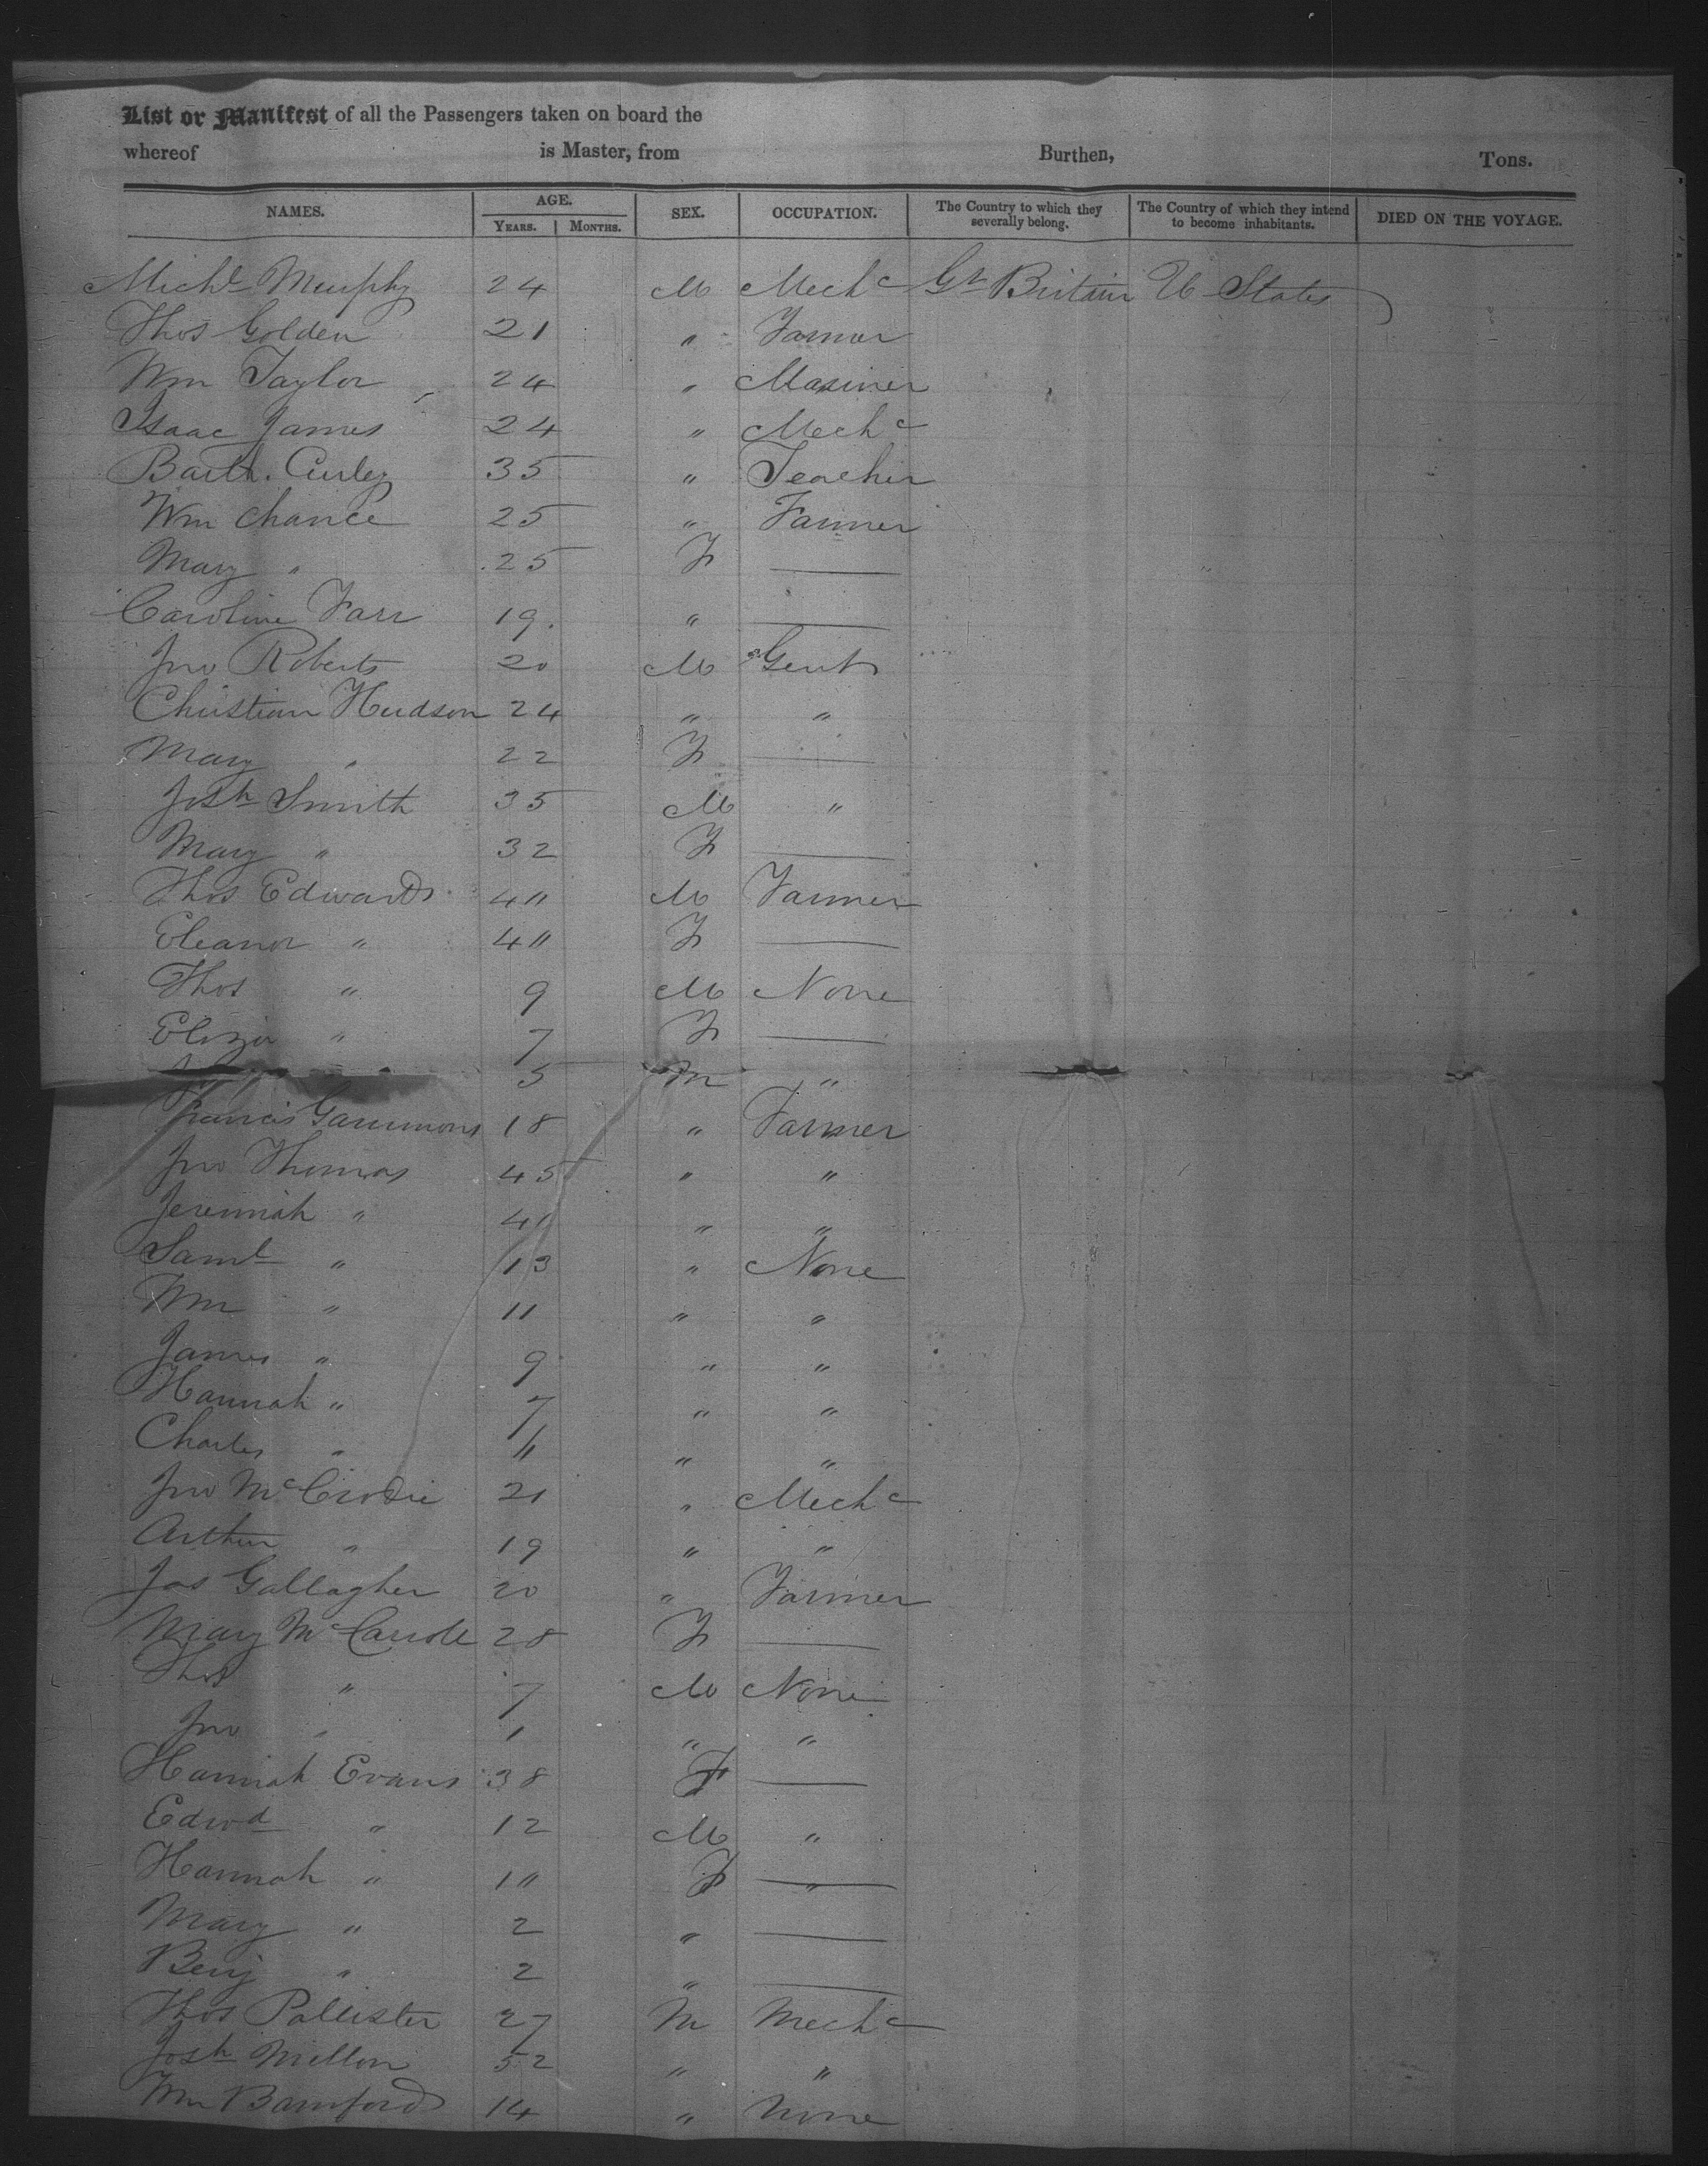 List or Manifest of all the Passengers taken on board the
whereof is Master, from Burthen, Tons.
NAMES. AGE. YEARS. MONTHS. SEX. OCCUPATION. The Country to which they severally belong. The Country of which they intend to become inhabitants. DIED ON THE VOYAGE.
Michl Murphy 24 M Mechc Gt Britain U States
Thos Golden 21 " Farmer
Wm Taylor 24 " Mariner
Isaac James 24 " Mechc
Barth. Curley 35 " Teacher
Wm Chance 25 " Farmer
Mary " 25 F —
Caroline Farr 19. " —
Jno Roberts 20 M Gent
Christian Hudson 24 " "
Mary " 22 F —
Josh Smith 35 M "
Mary " 32 F —
Thos Edwards 40 M Farmer
Eleanor " 40 F —
Thos " 9 M None
Eliza " 7 F —
5 M "
Francis Gammons 18 " Farmer
Jno Thomas 45 " "
Jeremiah " " "
Saml " 13 " None
Wm " 11 " "
James " 9 " "
Hannah " 7 " "
Charles " " "
Jno McCrodie 21 " Mechc
Arthur " 19 " "
Jas Gallagher 20 " Farmer
Mary McCarroll 28 F —
Thos " 7 M None
Jno " 1 " "
Hannah Evans 38 F —
Edwd " 12 M "
Hannah " 10 F —
Mary " 2 " —
Benj " 2 " —
Thos Pallister 27 M Mechc
Josh Mellon 52 " "
Wm Bamford 14 " None